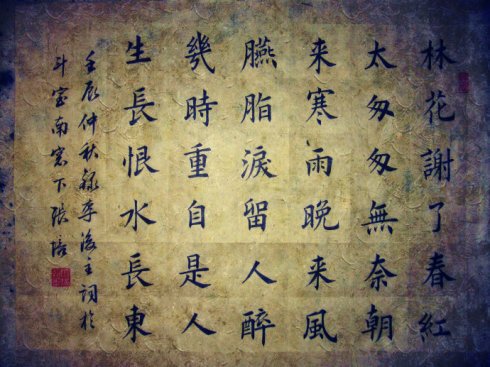 林花謝了春紅
太匆匆無奈朝
来寒雨晚来風
臙脂淚留人醉
幾時重自是人
生長恨水長東
壬辰仲秋録李後主詞於
斗室南窓下張